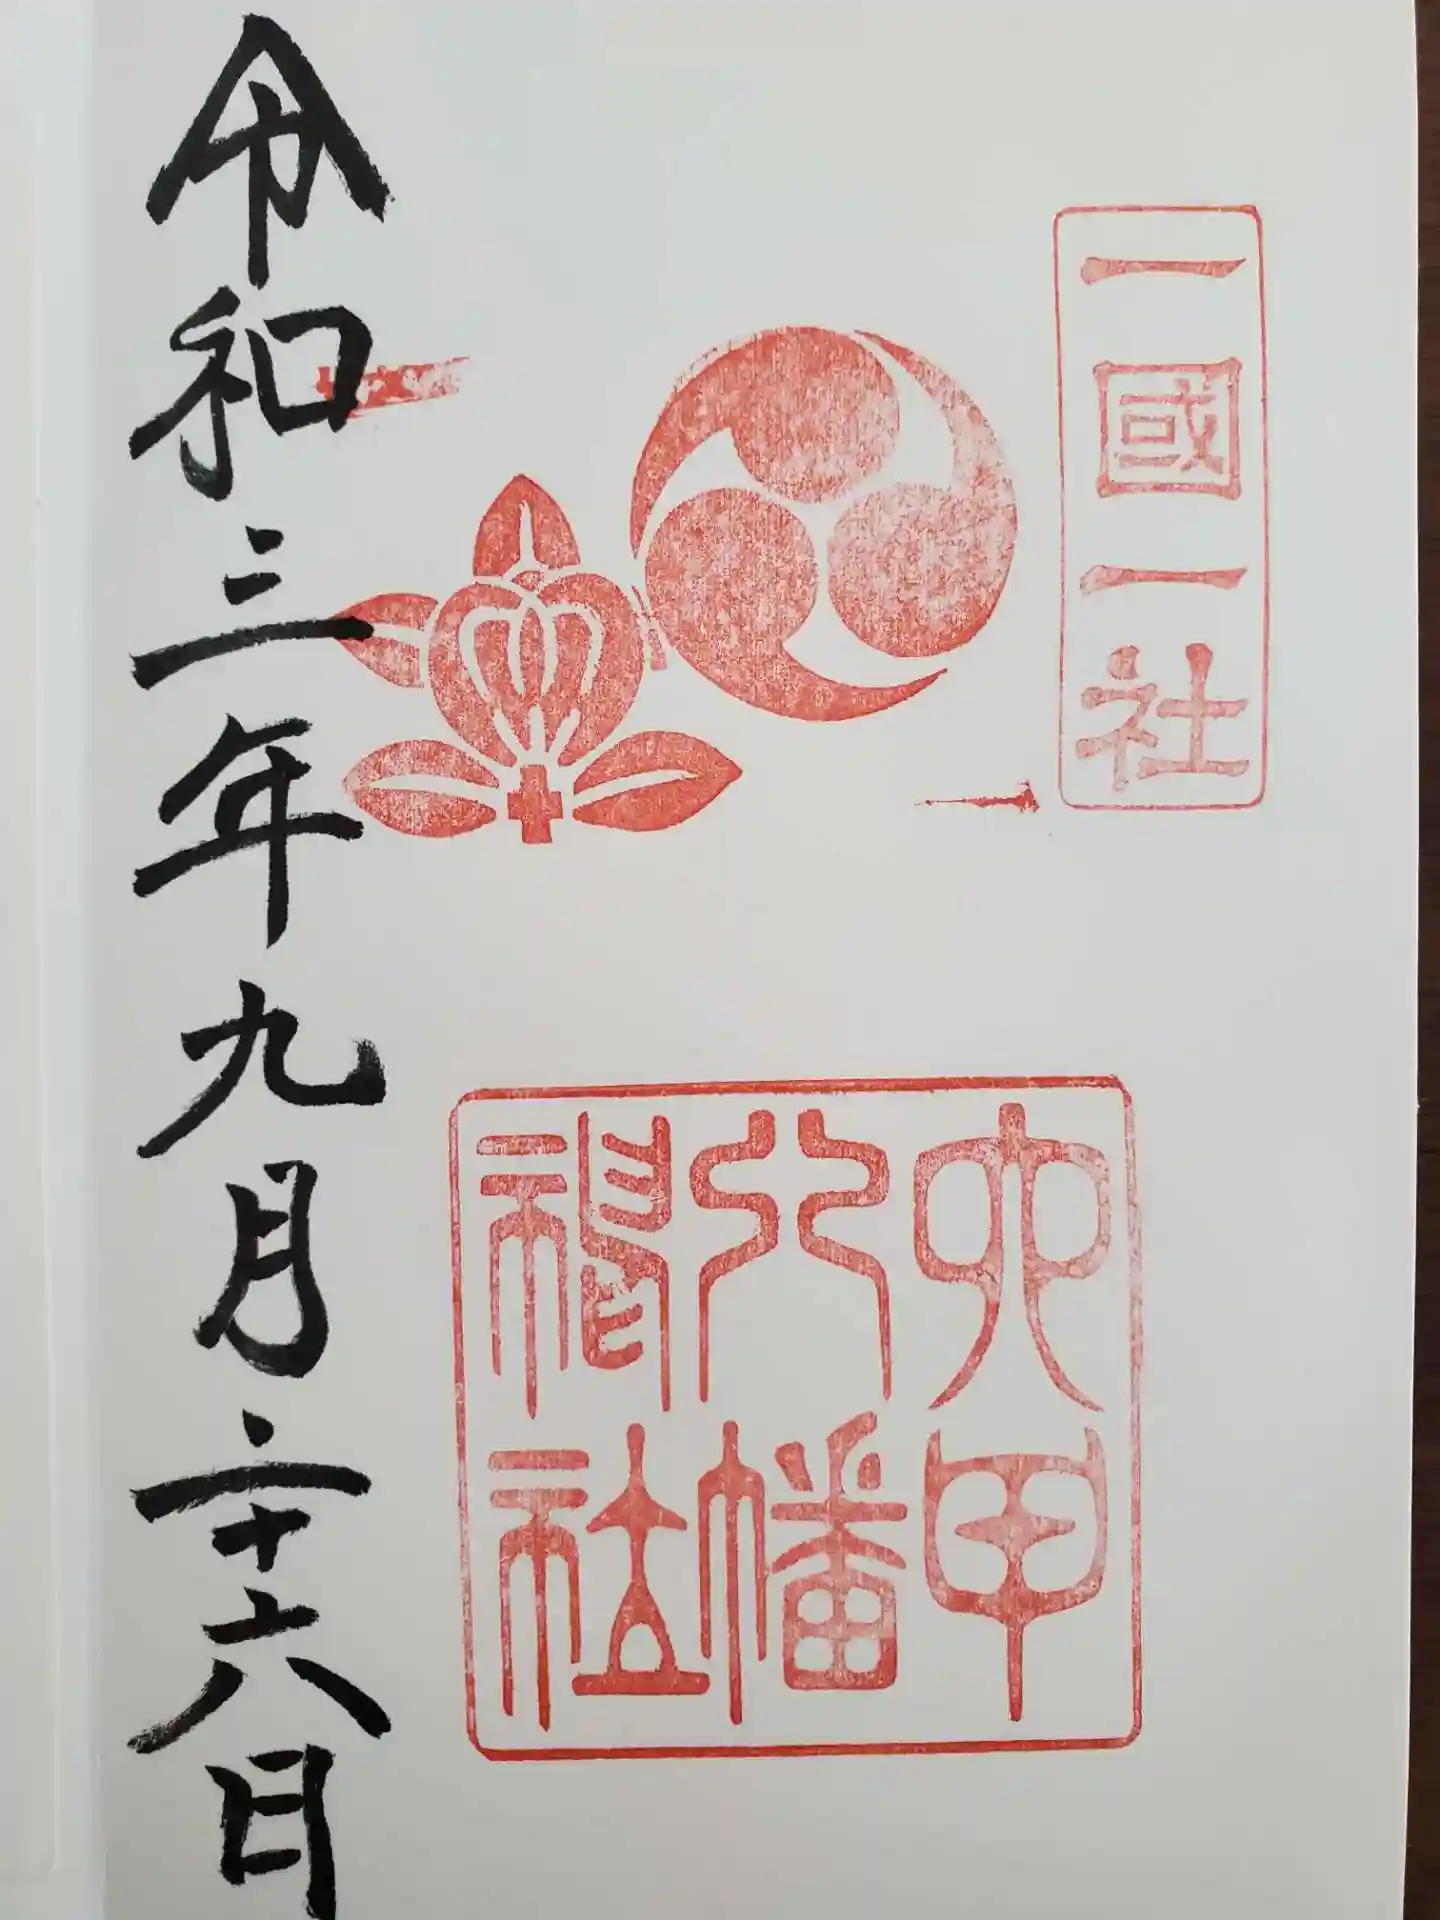 一國一社
六甲
八幡
神社
令和三年九月二十六日